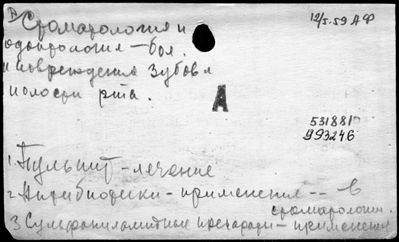 Стоматология и
одонтология - бол.
и повреждения зубов и
полости рта.
12/5.59 АФ
А
531881
993246
1. Пульпит - лечение
2. Антибиотики - применения -- в
стоматологии.
3. Сульфаниламидные препараты - применения